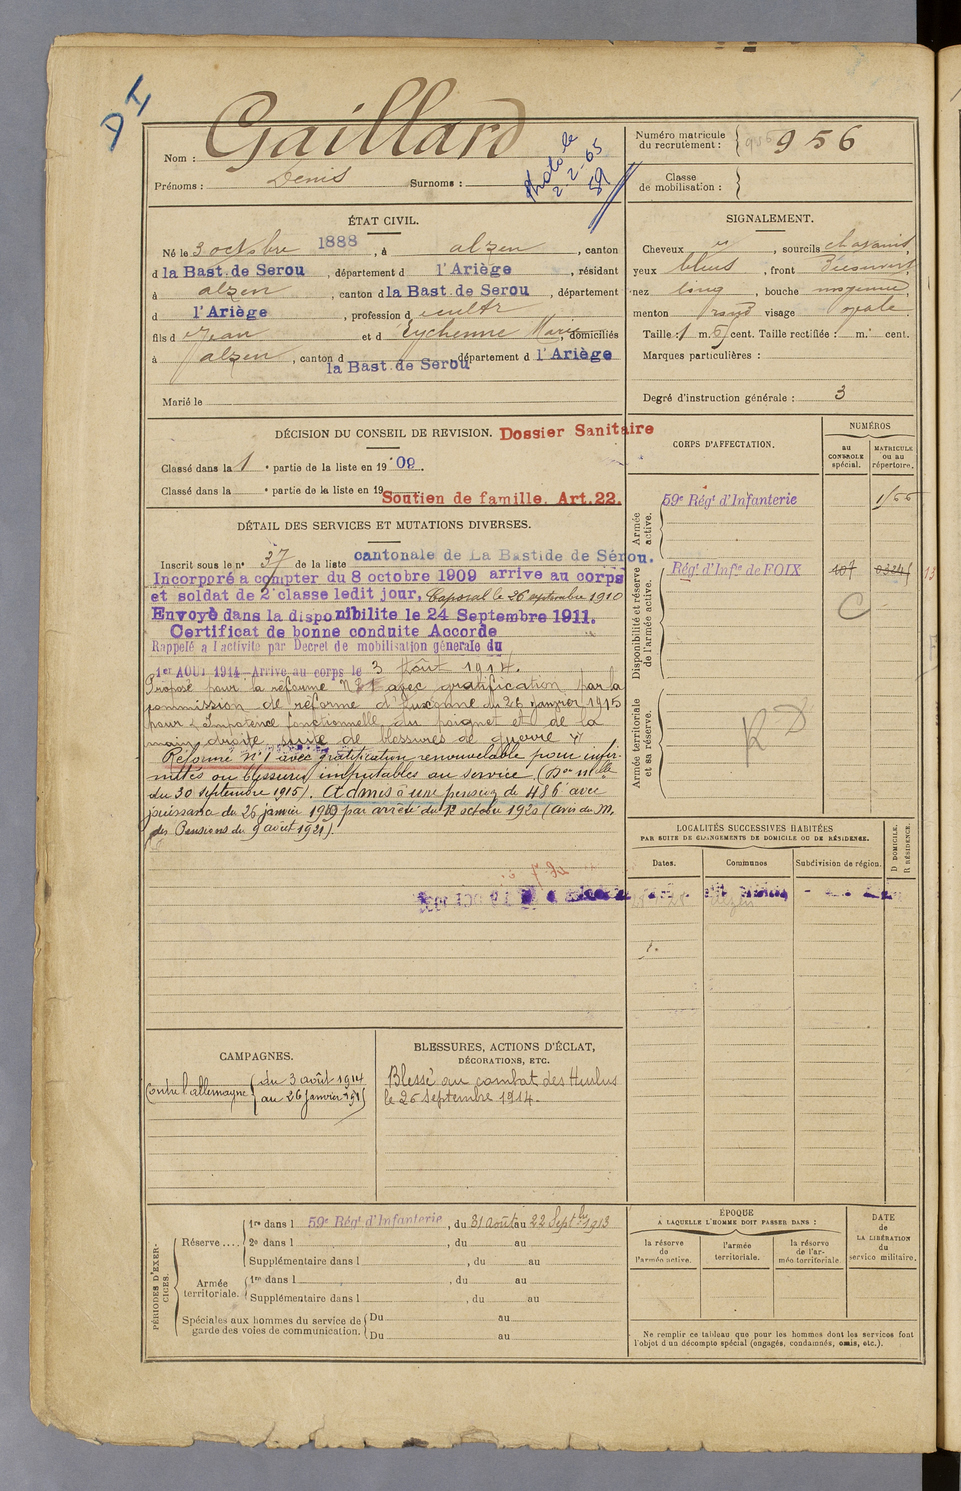 Photo le
2-2-65
89
Nom : Gaillard
Prénoms : Denis Surnoms :
Numéro matricule du recrutement : 956
Classe de mobilisation :
ÉTAT CIVIL.
Né le 3 octobre 1888, à alzen, canton
d la Bast. de Serou, département d l'Ariège, résidant
à alzen, canton d la Bast. de Serou, département
d l'Ariège, profession d cultr
fils d Jean et d Eychenne Marie, domiciliés
à alzen, canton d la Bast. de Serou département d l'Ariège
Marié le
SIGNALEMENT.
Cheveux et, sourcils chatains,
yeux bleus, front découvert,
nez long, bouche moyenne,
menton rond visage ovale.
Taille : 1 m. 6 cent. Taille rectifiée : m. cent.
Marques particulières :
Degré d'instruction générale : 3
DÉCISION DU CONSEIL DE REVISION. Dossier Sanitaire
Classé dans la 1 e partie de la liste en 1909.
Classé dans la e partie de la liste en 19
Soutien de famille. Art.22.
DÉTAIL DES SERVICES ET MUTATIONS DIVERSES.
Inscrit sous le no 37 de la liste cantonale de La Bastide de Sérou.
Incorporé a compter du 8 octobre 1909 arrive au corps
et soldat de 2e classe ledit jour. Caporal le 26 septembre 1910
Envoyé dans la disponibilite le 24 Septembre 1911.
Certificat de bonne conduite Accorde
Rappelé a l'activité par Decret de mobilisation génerale du
1er AOUT 1914 - Arrive au corps le 3 Août 1914.
Proposé pour la réforme No 1 avec gratification par la
commission de réforme d'Auxonne du 26 janvier 1915
pour "Impotence fonctionnelle du poignet et de la
main droite suite de blessures de guerre"
Réformé No 1 avec gratification renouvelable pour infir-
mités ou blessures imputables au service (Don mlle
du 30 septembre 1915). Admis à une pension de 486 avec
jouissance du 26 janvier 1919 par arrêté du 12 octobre 1920 (avis du M.
des Pensions du 9 août 1921).
CORPS D'AFFECTATION.
NUMÉROS
au CONTROLE spécial.
MATRICULE ou au répertoire.
Armée active.
59e Régt d'Infanterie
Disponibilité et réserve de l'armée active.
Régt d'Infie de FOIX 107
C
Armée territoriale et sa réserve.
RD
LOCALITÉS SUCCESSIVES HABITÉES
PAR SUITE DE CHANGEMENTS DE DOMICILE OU DE RÉSIDENCE.
Dates.
Communes
Subdivision de région.
D DOMICILE.
R RÉSIDENCE.
CAMPAGNES.
Contre l'allemagne du 3 août 1914
au 26 janvier 1915
BLESSURES, ACTIONS D'ÉCLAT,
DÉCORATIONS, ETC.
Blessé au combat des Hurlus
le 26 septembre 1914.
PÉRIODES D'EXERCICES.
Réserve .... 1re dans l 59e Régt d'Infanterie, du 31 août au 22 Septbre 1913
2e dans l , du au
Supplémentaire dans l , du au
Armée territoriale. 1re dans l , du au
Supplémentaire dans l , du au
Spéciales aux hommes du service de garde des voies de communication. Du au
Du au
ÉPOQUE
A LAQUELLE L'HOMME DOIT PASSER DANS :
la réserve de l'armée active.
l'armée territoriale.
la réserve de l'armée territoriale.
DATE de LA LIBÉRATION du service militaire.
Ne remplir ce tableau que pour les hommes dont les services font
l'objet d'un décompte spécial (engagés, condamnés, omis, etc.).